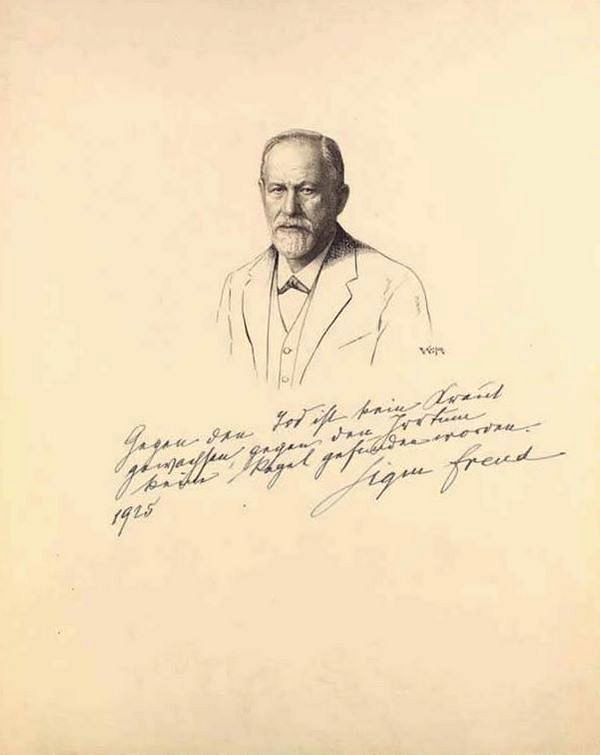 Gegen den Tod ist kein Kraut
gewachsen, gegen den Irrtum
keine Regel gefunden worden.
Sigm Freud
1925